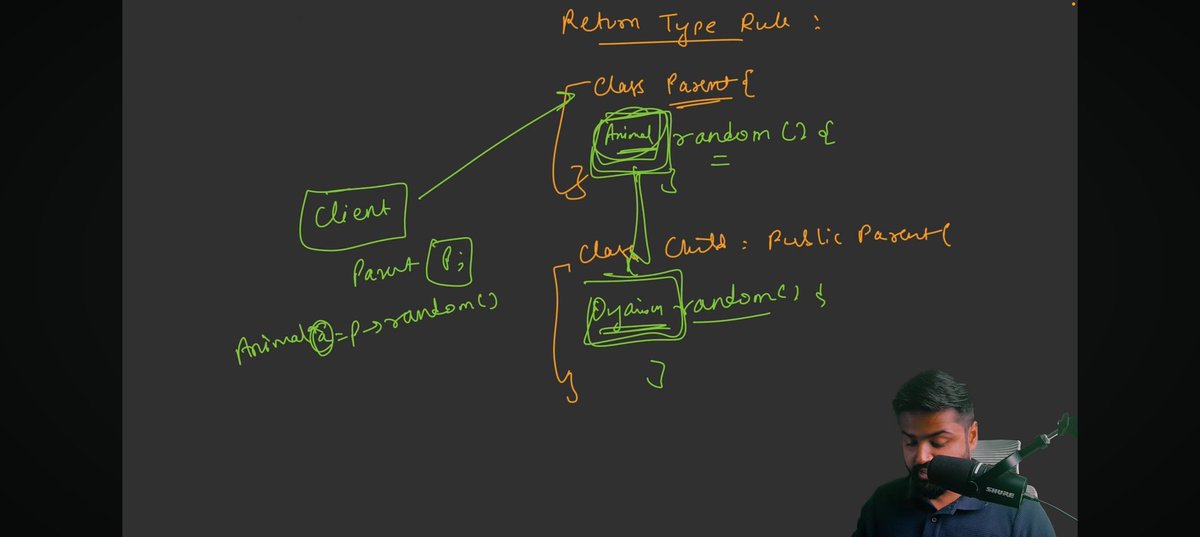 Return Type Rule :
Class Parent {
Animal random () {
}
}
Client
Class Child : Public Parent {
Parent P;
random() {
Animal a = p->random()
}
}
SHURE